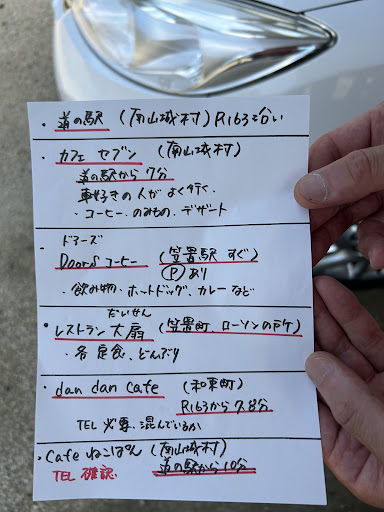 ・道の駅 (南山城村) R163沿い
・カフェ セブン (南山城村)
道の駅から 7分
車好きの人が よく行く
・コーヒー・のみもの・デザート
ドアーズ
・Doors コーヒー (笠置駅 すぐ)
Ⓟ あり
・飲み物・ホットドッグ、カレーなど
たいせん
・レストラン 大扇 (笠置町、ローソンの戸ケ)
・各定食、どんぶり
・dan dan cafe (和束町)
R163から 7.8分
TEL 必要、混んでいるか
・Cafe ねこぱん (南山城村)
TEL 確認 道の駅から10分